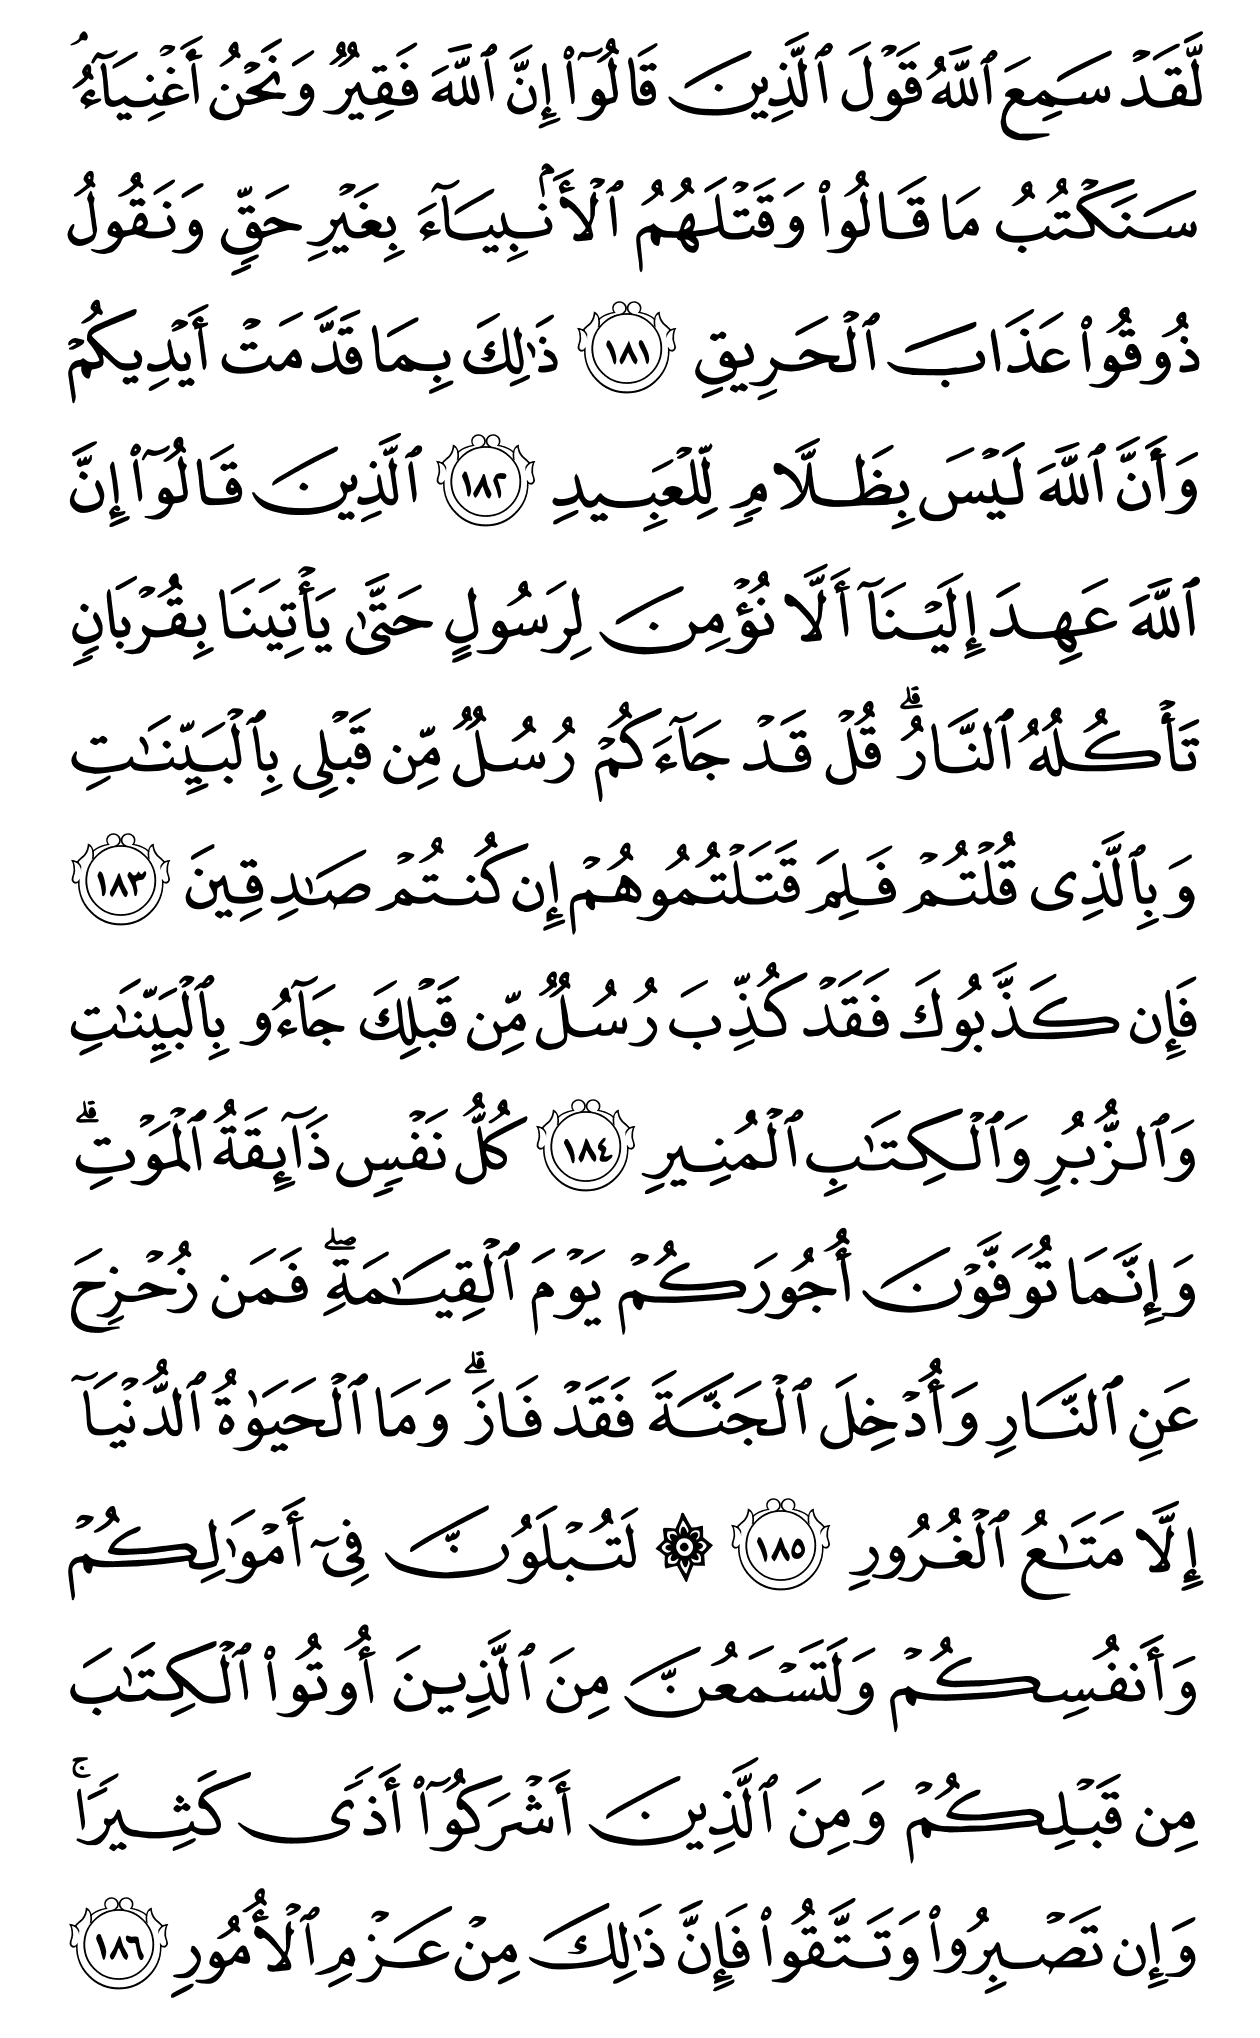 لَّقَدۡ سَمِعَ ٱللَّهُ قَوۡلَ ٱلَّذِينَ قَالُوٓاْ إِنَّ ٱللَّهَ فَقِيرٞ وَنَحۡنُ أَغۡنِيَآءُۘ
سَنَكۡتُبُ مَا قَالُواْ وَقَتۡلَهُمُ ٱلۡأَنۢبِيَآءَ بِغَيۡرِ حَقّٖ وَنَقُولُ
ذُوقُواْ عَذَابَ ٱلۡحَرِيقِ ١٨١ ذَٰلِكَ بِمَا قَدَّمَتۡ أَيۡدِيكُمۡ
وَأَنَّ ٱللَّهَ لَيۡسَ بِظَلَّامٖ لِّلۡعَبِيدِ ١٨٢ ٱلَّذِينَ قَالُوٓاْ إِنَّ
ٱللَّهَ عَهِدَ إِلَيۡنَآ أَلَّا نُؤۡمِنَ لِرَسُولٍ حَتَّىٰ يَأۡتِيَنَا بِقُرۡبَانٖ
تَأۡكُلُهُ ٱلنَّارُۗ قُلۡ قَدۡ جَآءَكُمۡ رُسُلٞ مِّن قَبۡلِي بِٱلۡبَيِّنَٰتِ
وَبِٱلَّذِي قُلۡتُمۡ فَلِمَ قَتَلۡتُمُوهُمۡ إِن كُنتُمۡ صَٰدِقِينَ ١٨٣
فَإِن كَذَّبُوكَ فَقَدۡ كُذِّبَ رُسُلٞ مِّن قَبۡلِكَ جَآءُو بِٱلۡبَيِّنَٰتِ
وَٱلزُّبُرِ وَٱلۡكِتَٰبِ ٱلۡمُنِيرِ ١٨٤ كُلُّ نَفۡسٖ ذَآئِقَةُ ٱلۡمَوۡتِۗ
وَإِنَّمَا تُوَفَّوۡنَ أُجُورَكُمۡ يَوۡمَ ٱلۡقِيَٰمَةِۖ فَمَن زُحۡزِحَ
عَنِ ٱلنَّارِ وَأُدۡخِلَ ٱلۡجَنَّةَ فَقَدۡ فَازَۗ وَمَا ٱلۡحَيَوٰةُ ٱلدُّنۡيَآ
إِلَّا مَتَٰعُ ٱلۡغُرُورِ ١٨٥ ۞ لَتُبۡلَوُنَّ فِيٓ أَمۡوَٰلِكُمۡ
وَأَنفُسِكُمۡ وَلَتَسۡمَعُنَّ مِنَ ٱلَّذِينَ أُوتُواْ ٱلۡكِتَٰبَ
مِن قَبۡلِكُمۡ وَمِنَ ٱلَّذِينَ أَشۡرَكُوٓاْ أَذٗى كَثِيرٗاۚ
وَإِن تَصۡبِرُواْ وَتَتَّقُواْ فَإِنَّ ذَٰلِكَ مِنۡ عَزۡمِ ٱلۡأُمُورِ ١٨٦